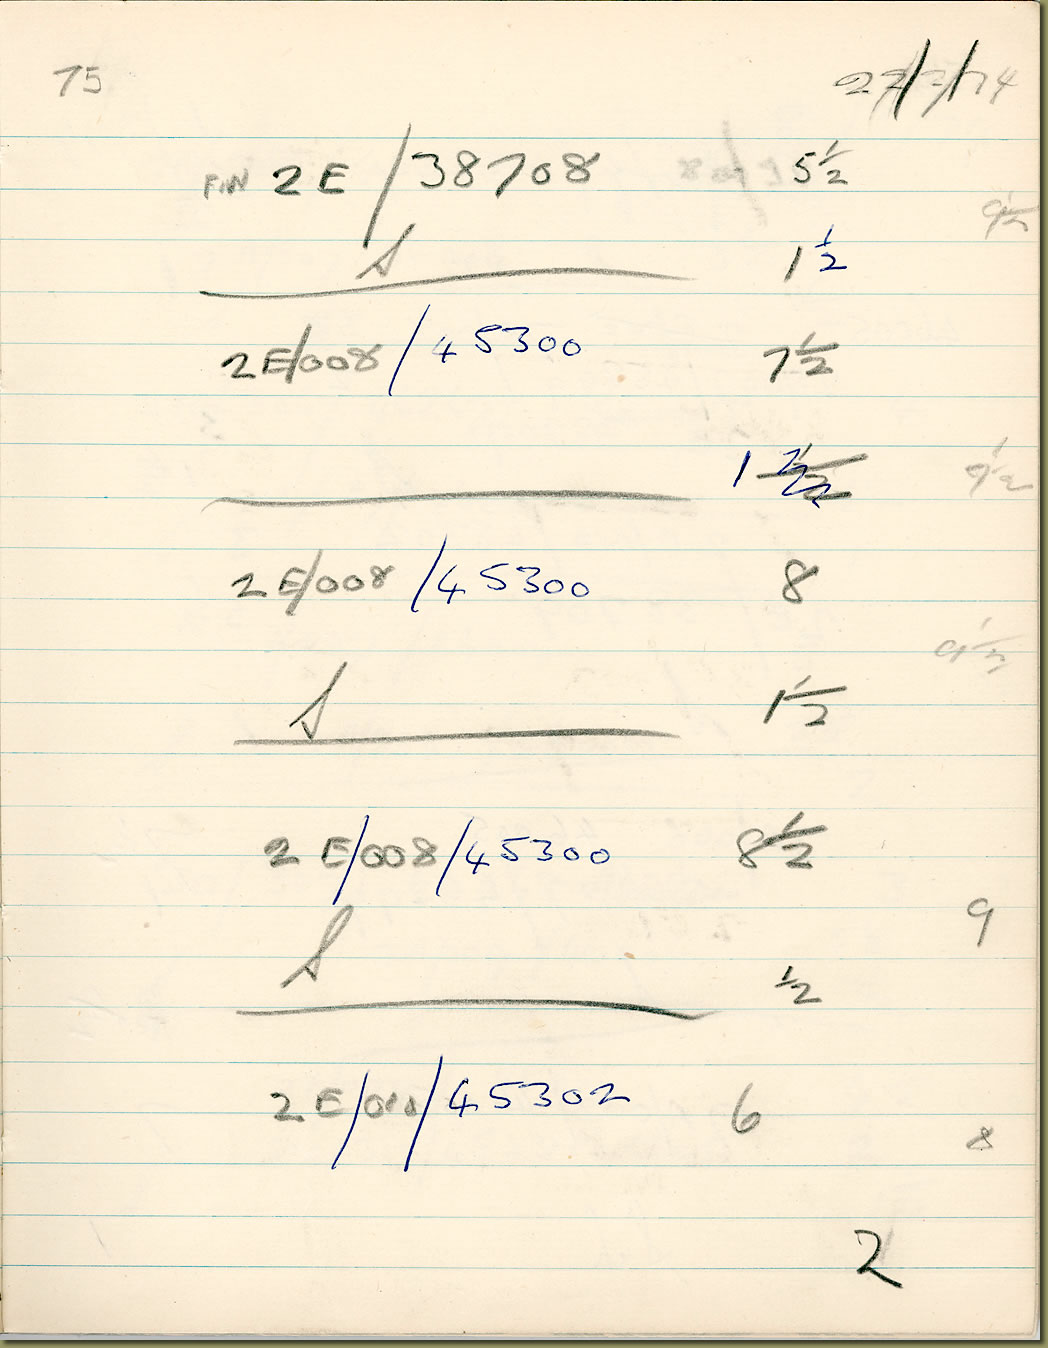 75
FIN 2E/38708 5½
9½
S 1½
2E/008/45300 7½
1
9½
2E/008/45300 8
9½
S 1½
2E/008/45300 8½
9
S ½
2E/010/45302 6
8
2